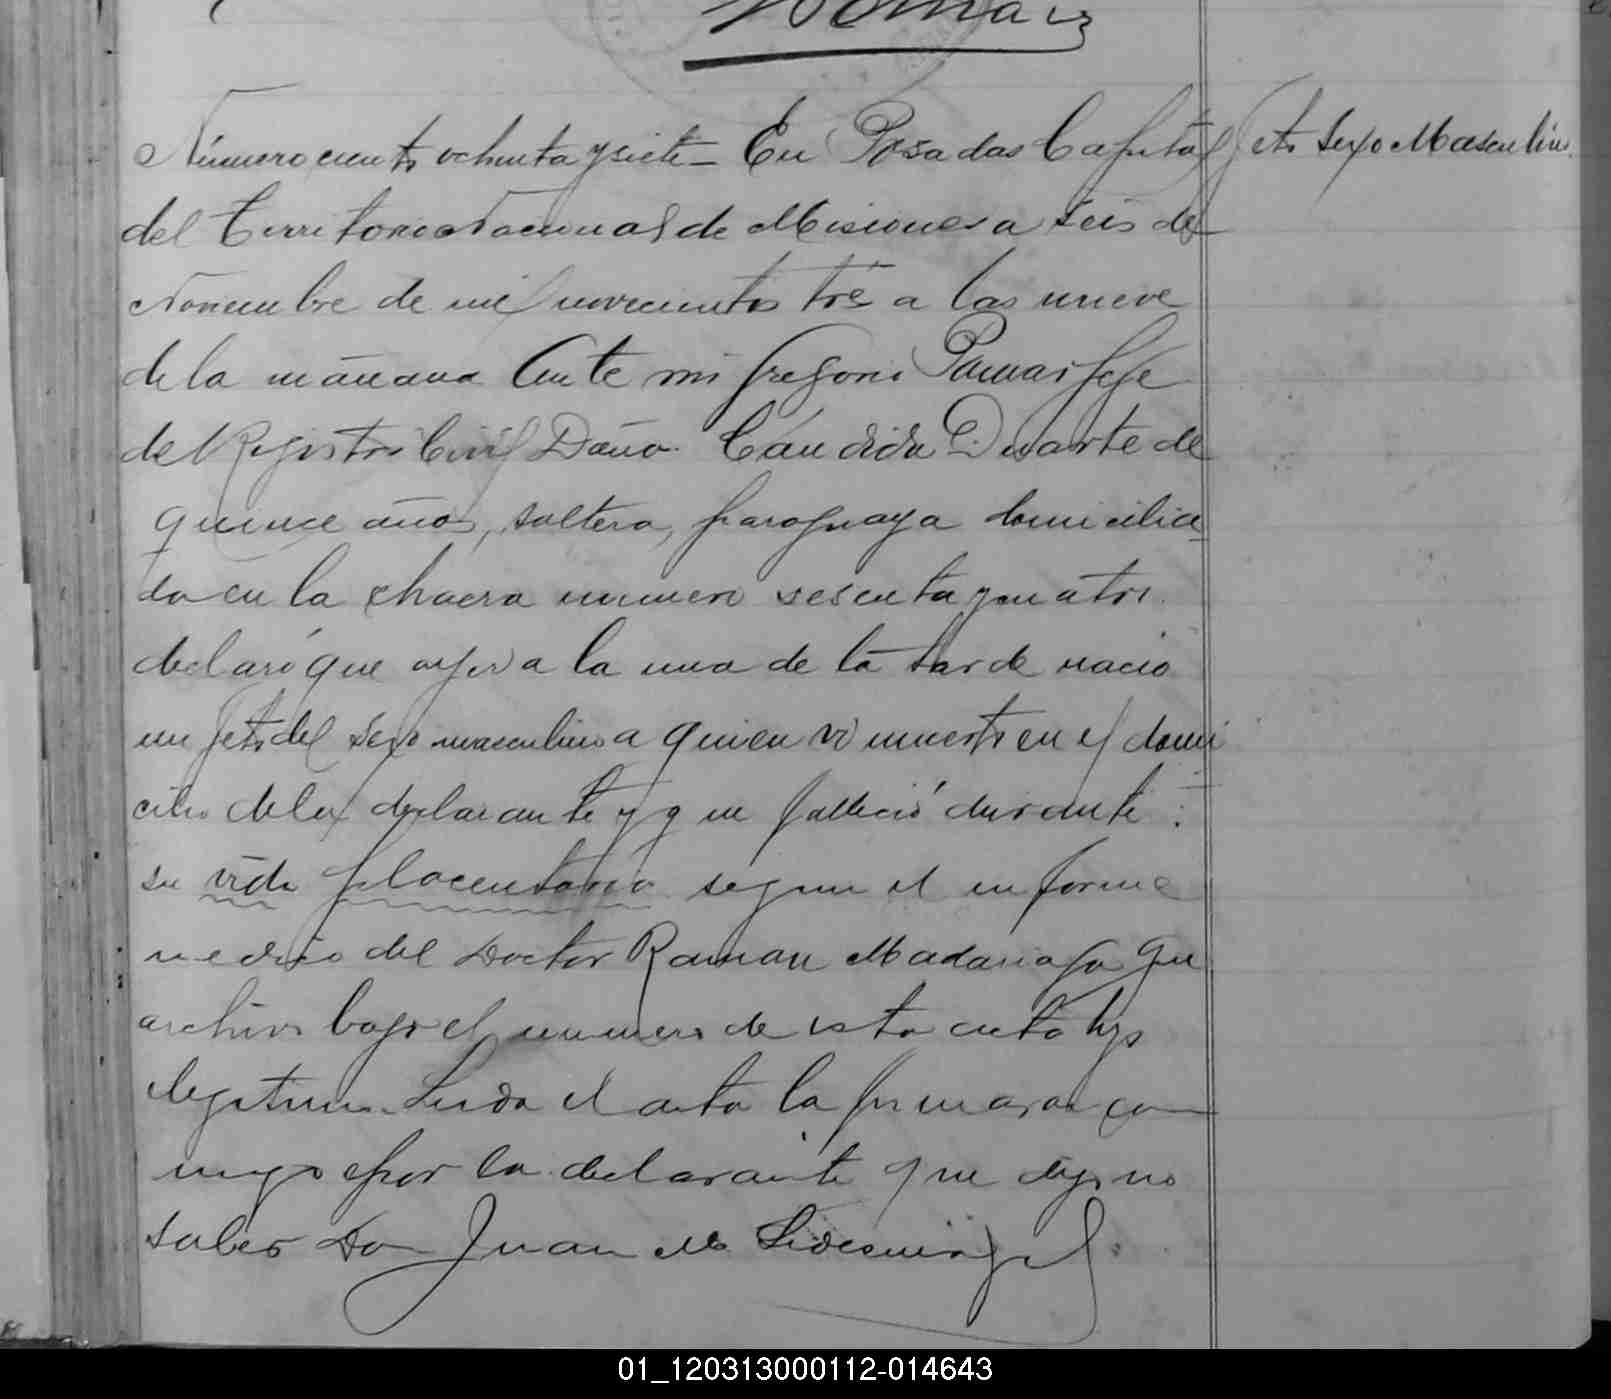 Romar
Número ciento ochenta y siete — En Posadas Capital
Feto Sexo Masculino
del Territorio Nacional de Misiones a seis de
Noviembre de mil novecientos tré a las nueve
de la mañana Ante mi Gregorio Pamar Jefe
de Registro Civil Doña Cándida Duarte de
quince años, soltera, paraguaya domicilia
da en la chacra numero sesenta y cuatro
declaró que ayer a la una de la tarde nacio
un feto del sexo masculino a quien vi muerto en el domi
cilio de la declarante y que fallecio durante
su vida placentaria segun el informe
medico del Doctor Raman Madariaga que
archivo bajo el numero de esta acta hijo
legitimo. Leida el acta la firmaron con
migo por la declarante que dijo no
saber Don Juan M Ledesma y el
01_120313000112-014643